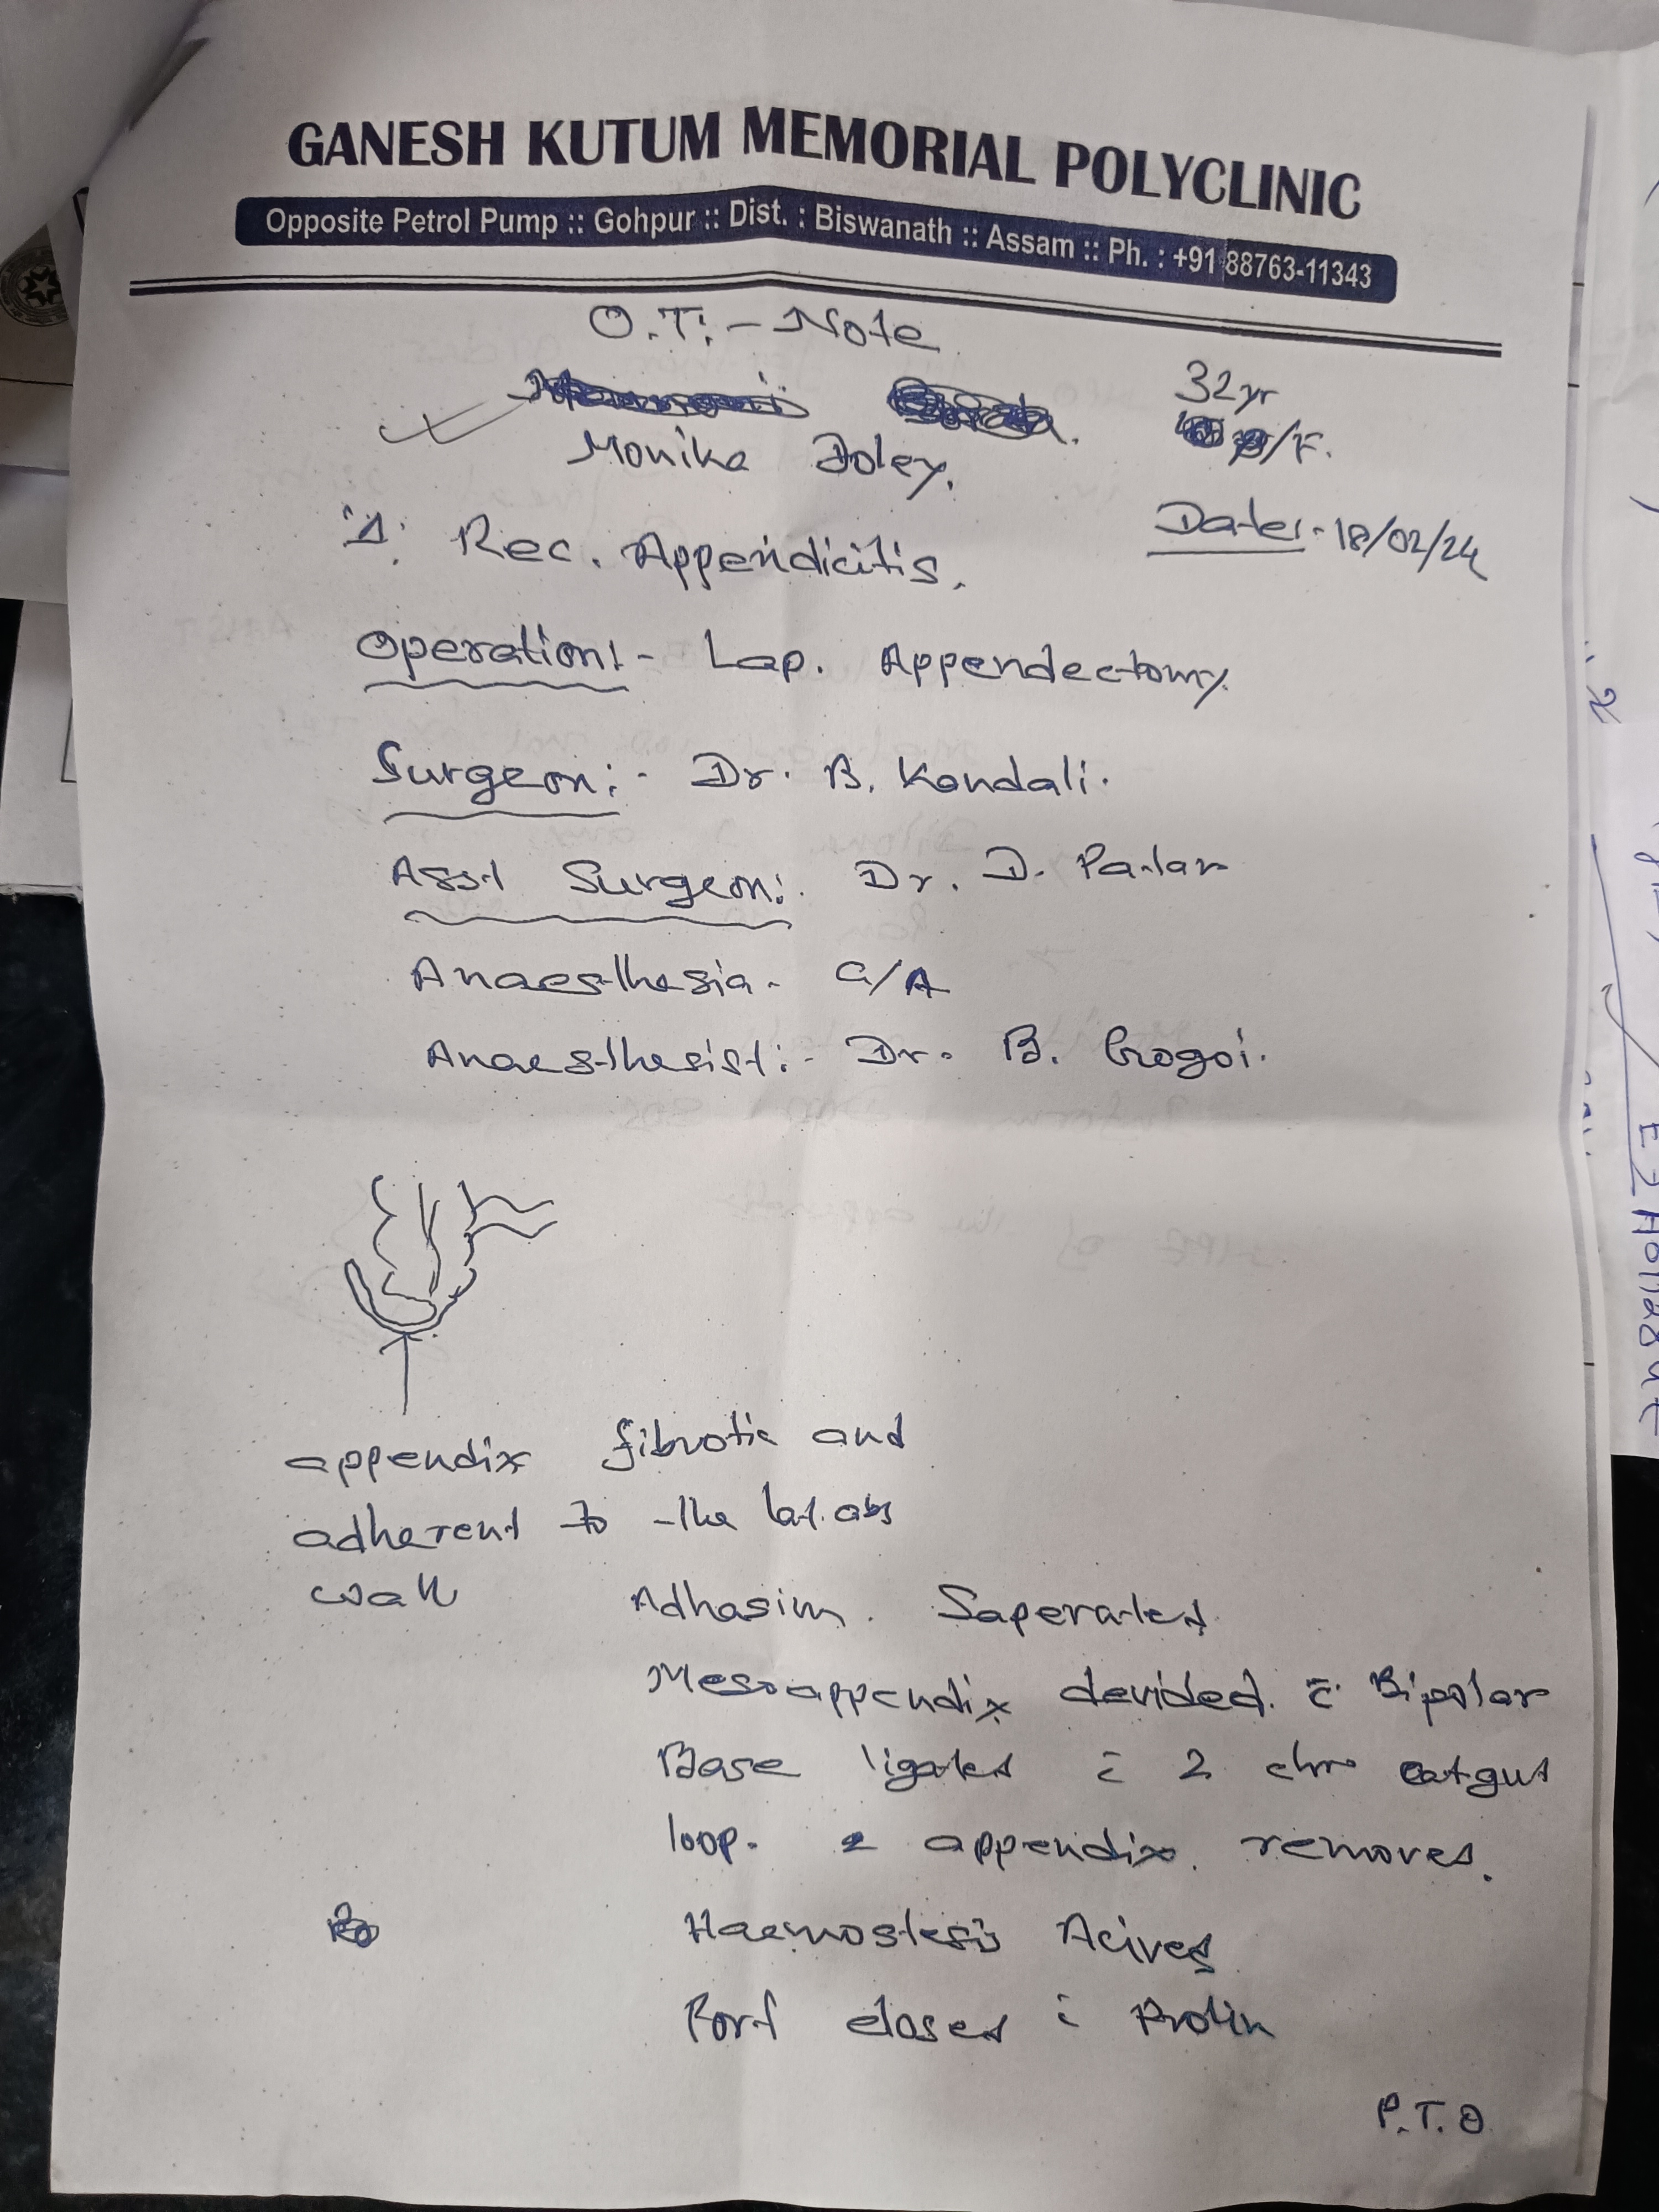 GANESH KUTUM MEMORIAL POLYCLINIC
Opposite Petrol Pump :: Gohpur :: Dist. : Biswanath :: Assam :: Ph. : +91 88763-11343
O.T. - Note
32yr
/F.
Monika Doley.
Date:- 18/02/24
Δ: Rec. Appendicitis.
Operation:- Lap. Appendectomy.
Surgeon:- Dr. B. Kondali.
Asst Surgeon: Dr. D. Patar
Anaesthesia- G/A
Anaesthesist:- Dr. B. Gogoi.
appendix fibrotic and
adherent to the lat. abs
wall
Adhasion. Saperated
Mesoappendix devided. c̄ Bipolar
Base ligated c̄ 2 chro catgut
loop. & appendix. removed.
Haemostesis Acived
Port closed c̄ Prolin
P.T.O